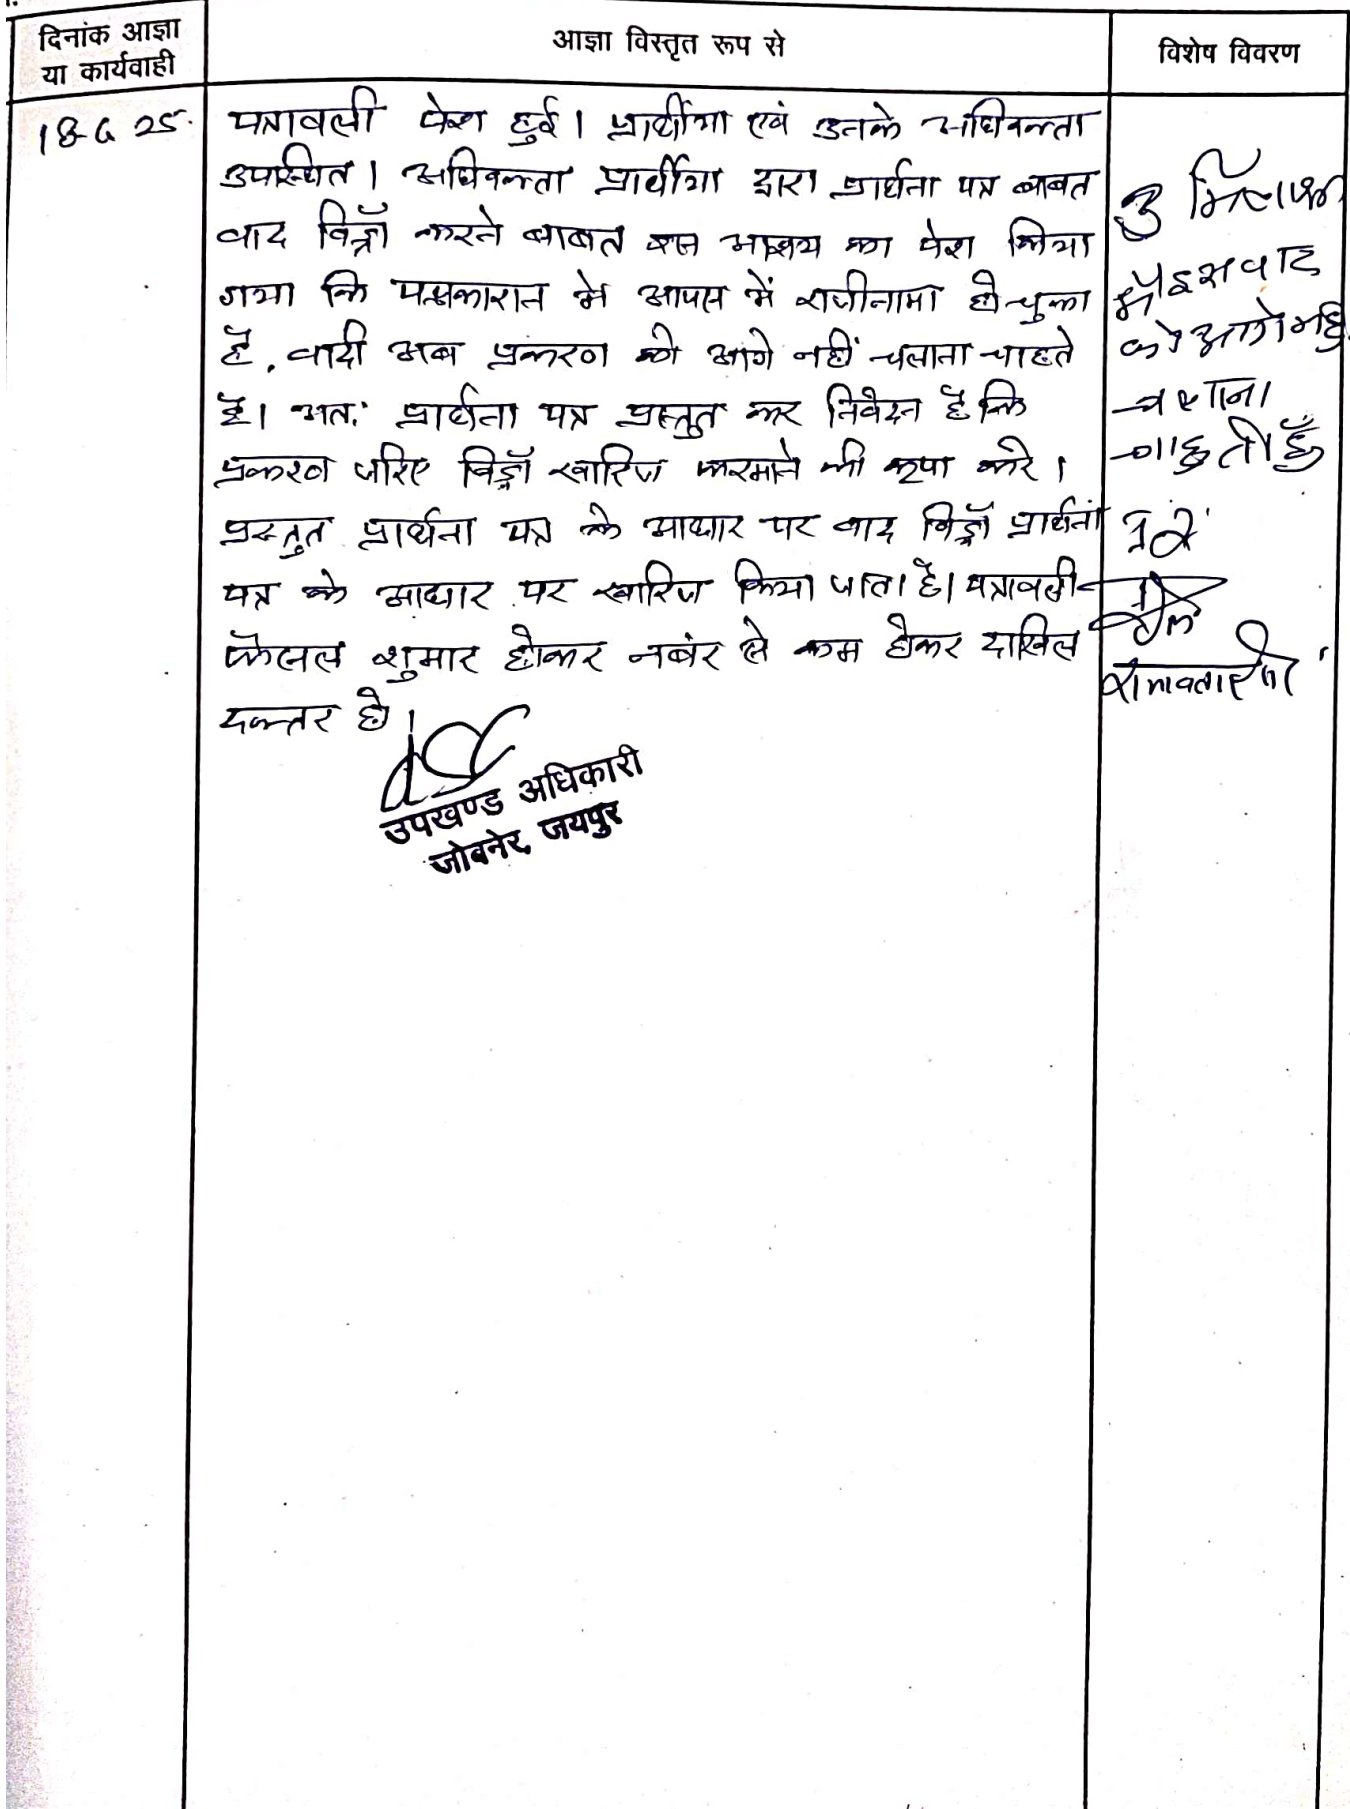 दिनांक आज्ञा
या कार्यवाही
आज्ञा विस्तृत रूप से
विशेष विवरण
18-6 25.
पत्रावली पेश हुई। प्रार्थीया एवं उनके अधिवक्ता
उपस्थित। अधिवक्ता प्रार्थीया द्वारा प्रार्थना पत्र बाबत
वाद विड्रॉ करने बाबत इस आशय का पेश किया
गया कि पक्षकारान मे आपस में राजीनामा हो चुका
है, वादी अब प्रकरण को आगे नहीं चलाना चाहते
है। अत: प्रार्थना पत्र प्रस्तुत कर निवेदन है कि
प्रकरण जरिए विड्रॉ खारिज फरमाने की कृपा करे।
प्रस्तुत प्रार्थना पत्र के आधार पर वाद विड्रॉ प्रार्थना
पत्र के आधार पर खारिज किया जाता है। पत्रावली
फैसल शुमार होकर नबंर से कम होकर दाखिल
दफ्तर हो।
उपखण्ड अधिकारी
जोबनेर, जयपुर
मैं इस वाद
को आगे नहीं
चलाना
चाहती हूँ